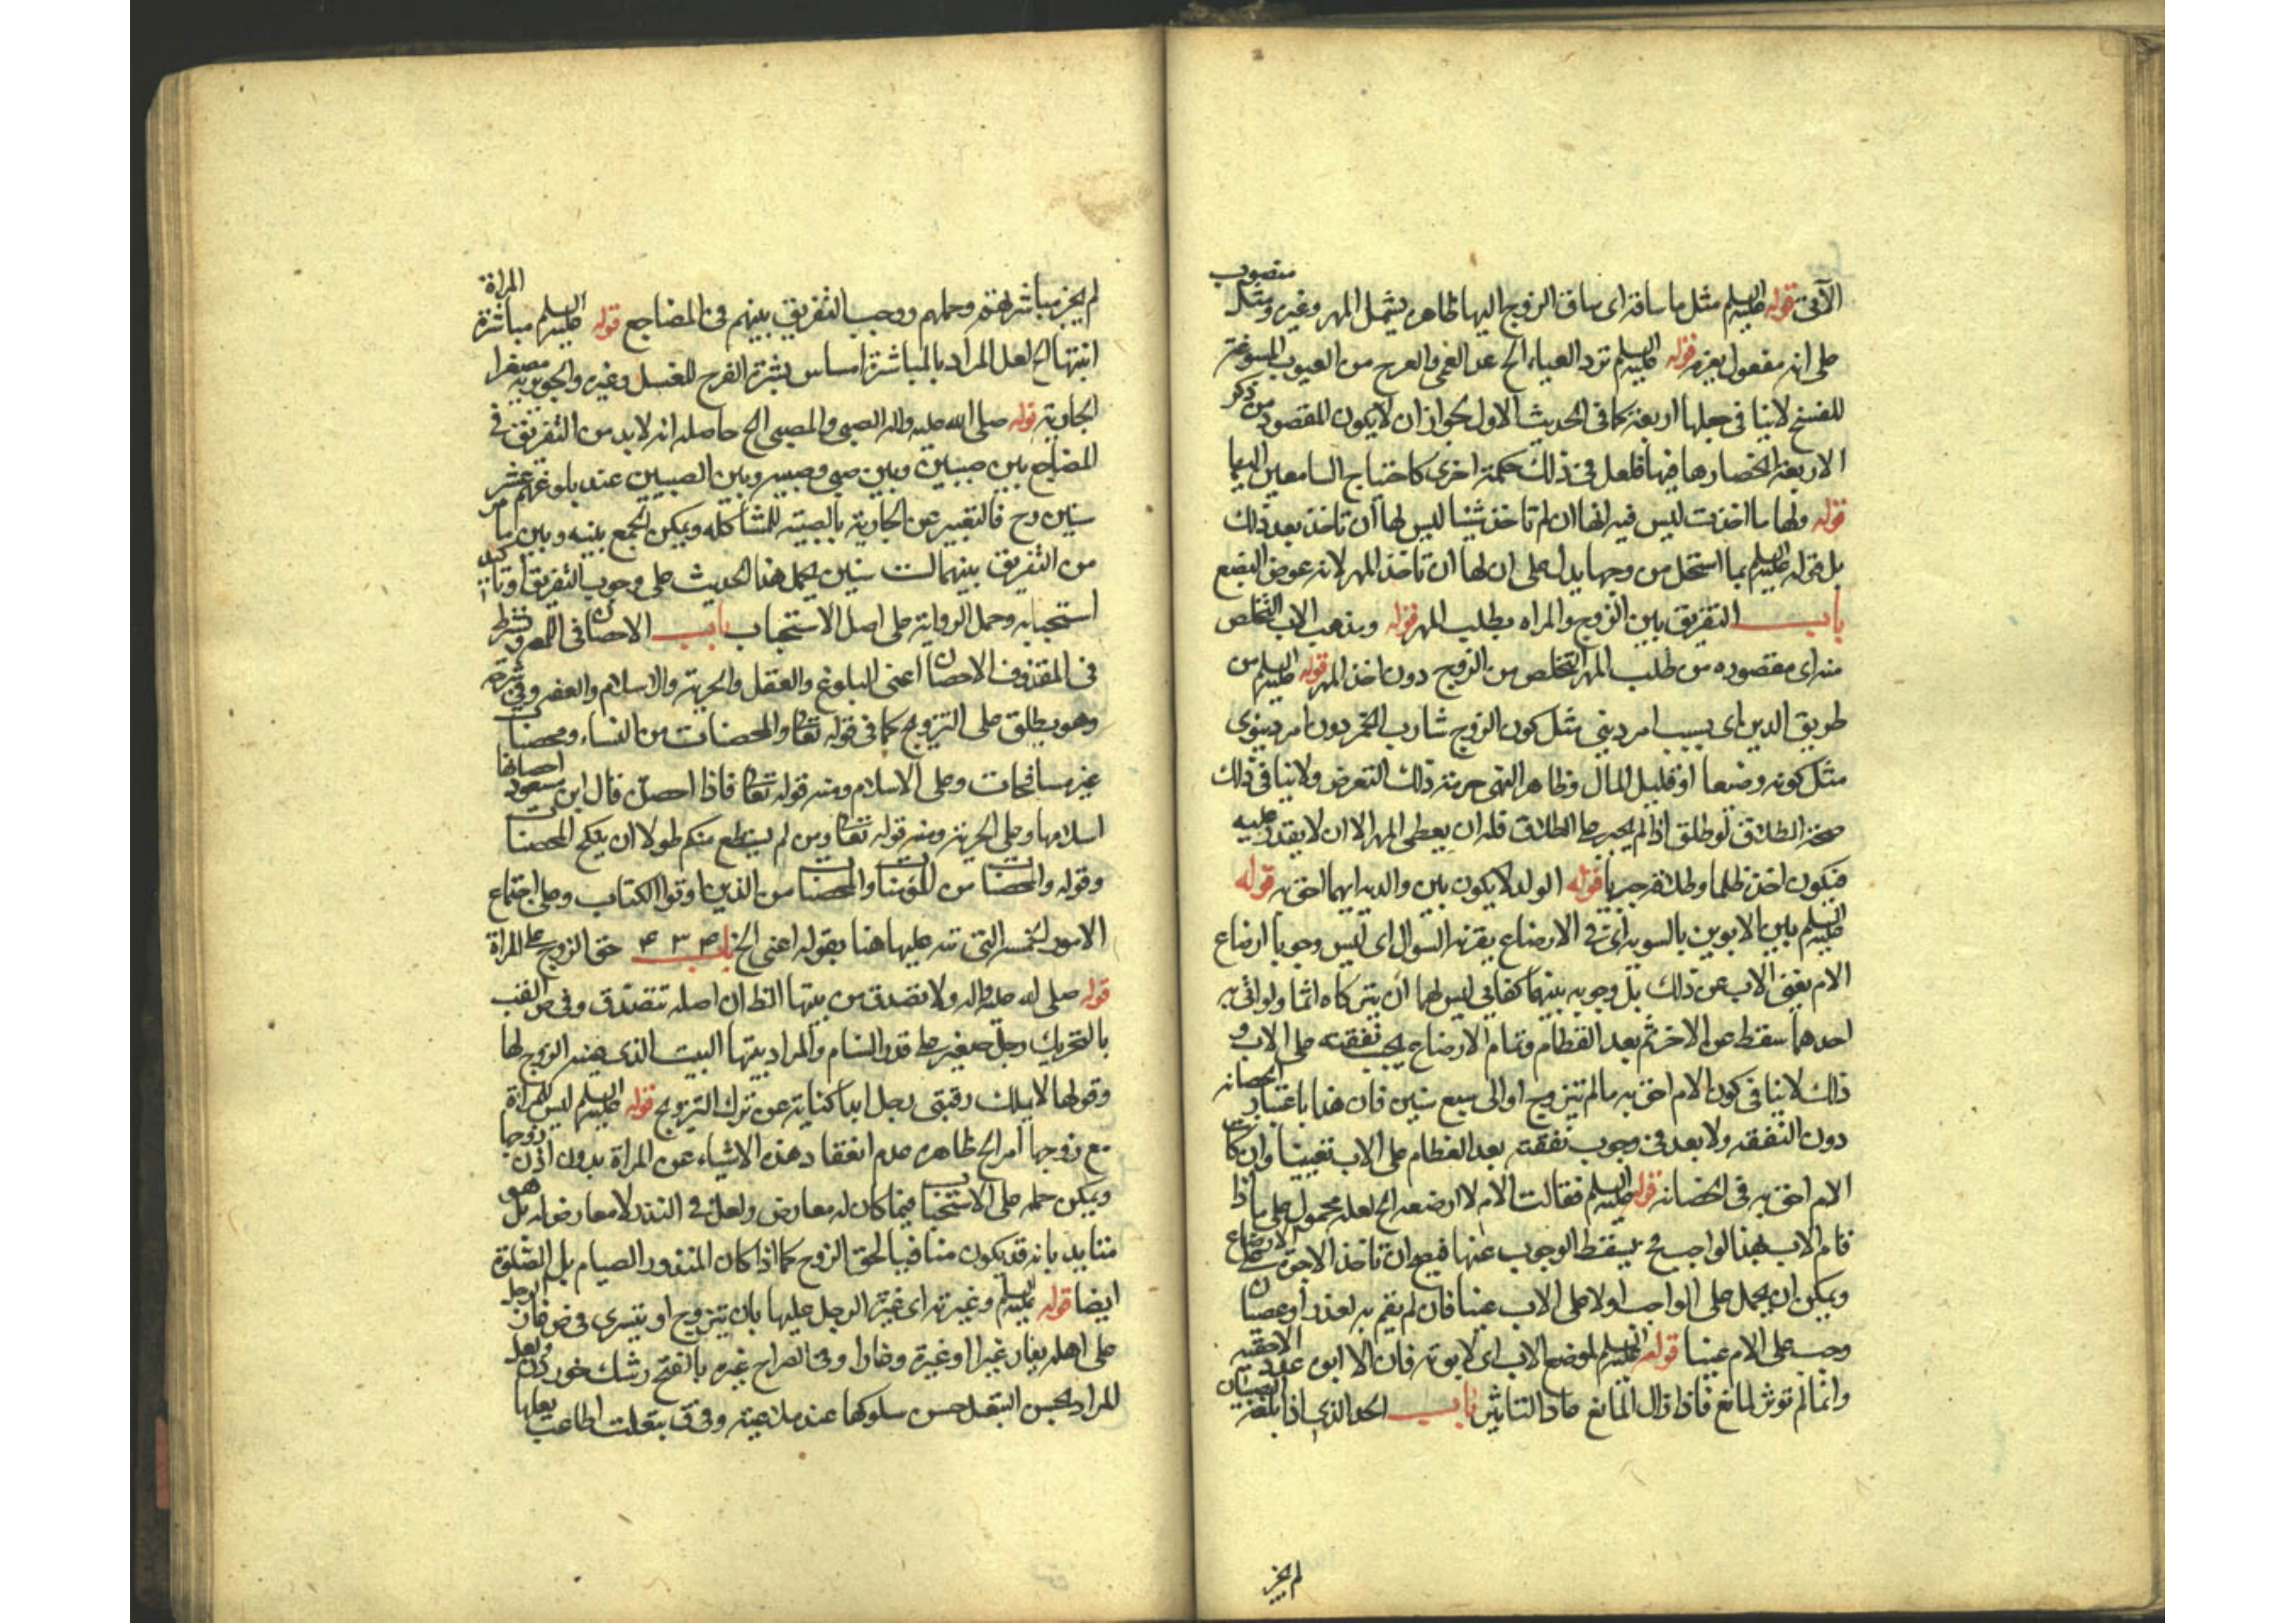 الآتى قوله عليه السلم مثل ما ساقه اى ساق الزوج اليها ظاهره يشمل المهر وغيره ومثل منصوب
على انه مفعول يغرم قوله عليه السلم ترد العمياء الخ عد العمى والعرج من العيوب المسوغة
للفسخ لا ينافى جعلها اربعة كما فى الحديث الاول لجواز ان لا يكون المقصود من ذكر
الاربعة انحصارها فيها فلعل فى ذلك حكمة اخرى كاحتياج السامعين اليها
قوله ولها ما اخذت ليس فيه انها ان لم تاخذ شيئا ليس لها ان تاخذ بعد ذلك
بل قوله عليه السلم بما استحل من فرجها يدل على ان لها ان تاخذ المهر لانه عوض البضع
باب التفريق بين الزوج والمراه بطلب المهر قوله ومذهب الاب التخلص
منه اى مقصوده من طلب المهر التخلص من الزوج دون اخذ المهر قوله عليه السلم من
طريق الدين اى بسبب امر دينى مثل كون الزوج شارب الخمر دون امر دنيوى
مثل كونه وضيعا او قليل المال وظاهر النهى حرمة ذلك التعرض ولا ينافى ذلك
صحة الطلاق لو طلق اذا لم يجبر على الطلاق فله ان يعطى المهر الا ان لا يقدر عليه
فيكون اخذه ظلما وطلاقه جبريا قوله الولد لا يكون بين والديه ايهما احق به قوله
عليه السلم بين الابوين بالسويه اى فى الارضاع بقرنه السوال اى ليس وجوبا ارضاع
الام بغنى الاب عن ذلك بل وجوبه بينهما كفائى ليس لهما ان يتركاه اثما ولو اتى به
احدهما سقط عن الاخر ثم بعد الفطام وتمام الارضاع يجب نفقته على الاب و
ذلك لا ينافى كون الام احق به ما لم تتزوج او الى سبع سنين فان هذا باعتبار الحضانه
دون النفقه ولا بعد فى وجوب نفقته بعد الفطام على الاب تعيينا وان كانت
الام احق به فى الحضانه قوله عليه السلم فقالت الام لا ارضعه الخ لعله محمول على ما اذا
قام الاب بهذا الواجب فح يسقط الوجوب عنها فيصح ان تاخذ الاجرة على الارضاع
ويمكن ان يحمل على الواجب اولا على الاب عينا فان لم يقم به لعذر او عصيان
وجب على الام عينا قوله عليه السلم لموضع الاب اى لابوته فان الابوه الاحقيه
وانما لم توثر لمانع فاذا زال المانع عاد التاثير باب الحد الذى اذا بلغه الصبيان
لم يجز
لم يجز مباشرتهم وحملهم ووجب التفريق بينهم فى المضاجع قوله عليه السلم مباشرة المراة
ابنتها الخ لعل المراد بالمباشرة امساس بشرة الفرج للغسل وغيره والجويريه مصغرا
الجارية قوله صلى الله عليه واله الصبى والصبى الخ حاصله انه لا بد من التفريق فى
المضاجع بين صبيين وبين صبى وصبيه وبين الصبيين عند بلوغهم عشر
سنين وح فالتعبير عن الجارية بالصبيه للمشاكله ويمكن الجمع بينه وبين ما مر
من التفريق بينهما لست سنين بحمل هذا الحديث على وجوب التفريق او تاكيد
استحبابه وحمل الرواية على اصل الاستحباب باب الاحصان
فى المقذوف الاحصان اعنى البلوغ والعقل والحرية والاسلام والعفه
وهو يطلق على التزويج كما فى قوله تعالى والمحصنات من النساء ومحصنات
غير مسافحات وعلى الاسلام ومنه قوله تعالى فاذا احصن قال ابن مسعود احصانها
اسلامها وعلى الحرية ومنه قوله تعالى ومن لم يستطع منكم طولا ان ينكح المحصنات
وقوله والمحصنات من المؤمنات والمحصنات من الذين اوتوا الكتاب وعلى اجتماع
الامور الخمسه التى نبه عليها هنا بقوله اعنى الخ باب حق الزوج على المراة
قوله صلى الله عليه واله ولا تصدق من بيتها الظ ان اصله تتصدق وفى ص القتب
بالتحريك رحل صغير على قدر السنام والمراد ببيتها البيت الذى هيئه الزوج لها
وقولها لا يملك رقبتى رجل ابدا كناية عن ترك التزويج قوله عليه السلم ليس للمراة
مع زوجها امر الخ ظاهره عدم انعقاد هذه الاشياء عن المراة بدون اذن زوجها
ويمكن حمله على الاستحباب فيما كان له معارض ولعل فى النذر لا معارض له بل هو
متايد بانه قد يكون منافيا لحق الزوج كما اذا كان المنذور الصيام بل الصلوة
ايضا قوله عليه السلم وغيرته اى غيرة الرجل عليها بان يتزوج او يتسرى فى ص غار الرجل
على اهله يغار غيرا وغيرة وغارا وفى الصراح غيره بالفتح رشك خوردن ولعل
المراد بحسن التبعل حسن سلوكها عند ملاعبته وفى ق تبعلت اطاعت بعلها